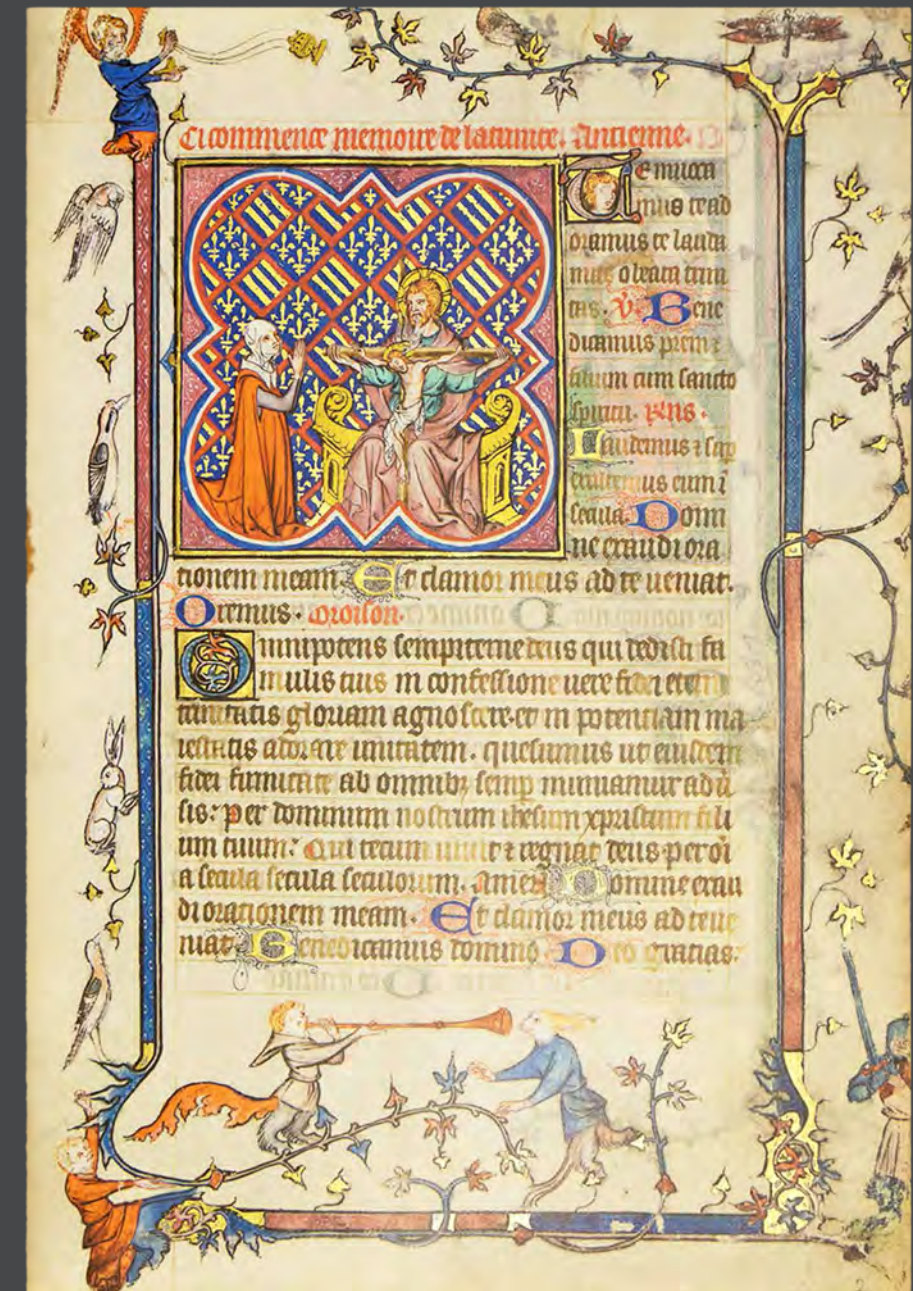 Ci commence memoire de la trinite. Antienne.
Te inuoca
mus te ad
oramus te lauda
mus o beata trini
tas. V. Bene
dicamus prem ⁊
filium cum sancto
spiritu. Rns.
Laudemus ⁊ sup
exaltemus eum ī
secula. Domi
ne exaudi ora
tionem meam. Et clamor meus ad te ueniat.
Oremus. Oroison.
Omnipotens sempiterne deus qui dedisti fa
mulis tuis in confessione uere fidei eterne
trinitatis gloriam agnoscere. et in potentiam ma
iestatis adorare unitatem. quesumus ut eiusdem
fidei firmitate ab omnibꝫ semp muniamur aduˀ
sis. Per dominum nostrum ihesum xpristum fili
um tuum. Qui tecum uiuit ⁊ regnat deus per oī
a secula secula seculorum. Amen. Domine exau
di orationem meam. Et clamor meus ad te ue
niat. Benedicamus domino. Deo gracias.